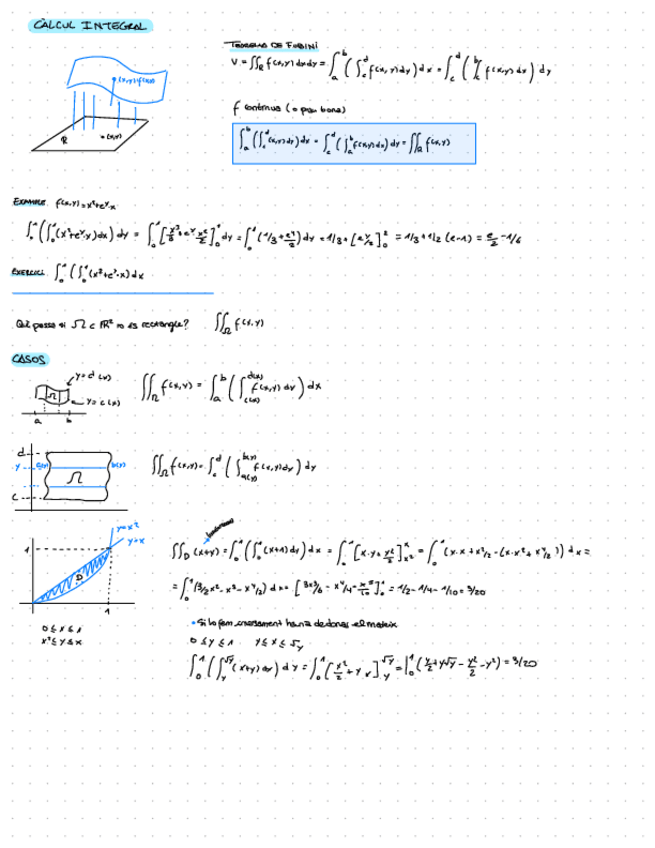 CÀLCUL INTEGRAL
TEOREMA DE FUBINI
V = ∬_R f(x,y) dx dy = ∫_a^b ( ∫_c^d f(x,y) dy ) dx = ∫_c^d ( ∫_a^b f(x,y) dx ) dy
R
(x,y)
f contínua
∫_a^b ( ∫_c^d f(x,y) dy ) dx = ∫_c^d ( ∫_a^b f(x,y) dx ) dy = ∬_R f(x,y)
EXAMPLE. f(x,y) = x²+e^y·x
∫_0^1 ( ∫_0^1 (x²+e^y·x) dx ) dy = ∫_0^1 [ x³/3 + e^y x²/2 ]_0^1 dy = ∫_0^1 ( 1/3 + e^y/2 ) dy = 1/3 + [ e^y/2 ]_0 = 1/3 + 1/2 (e-1) = e/2 - 1/6
EXERCICI. ∫_0^1 ( ∫_0^1 (x²+e^y·x) dx
Què passa si Ω ⊂ ℝ² no és rectangle? ∬_Ω f(x,y)
CASOS
y = d(x)
Ω
y = c(x)
a b
∬_Ω f(x,y) = ∫_a^b ( ∫_{c(x)}^{d(x)} f(x,y) dy ) dx
d
y a(y) b(y)
Ω
c
∬_Ω f(x,y) = ∫_c^d ( ∫_{a(y)}^{b(y)} f(x,y) dy ) dy
y=x²
y=x
1
D
1
∬_D (x+y) = ∫_0^1 ( ∫ (x+y) dy ) dx = ∫_0^1 [ x·y + y²/2 ]_{x²}^x = ∫_0^1 ( x·x + x²/2 - (x·x² + x⁴/2) ) dx =
= ∫_0^1 (3/2 x² - x³ - x⁴/2) dx = [ 3x³/6 - x⁴/4 - x⁵/10 ]_0^1 = 1/2 - 1/4 - 1/10 = 3/20
0 ≤ x ≤ 1
x² ≤ y ≤ x
• Si ho fem inversament ha de donar el mateix
0 ≤ y ≤ 1 y ≤ x ≤ √y
∫_0^1 ( ∫_y^{√y} (x+y) dx ) dy = ∫_0^1 [ x²/2 + y x ]_y^{√y} = ∫_0^1 ( y/2 + y√y - y²/2 - y² ) = 3/20